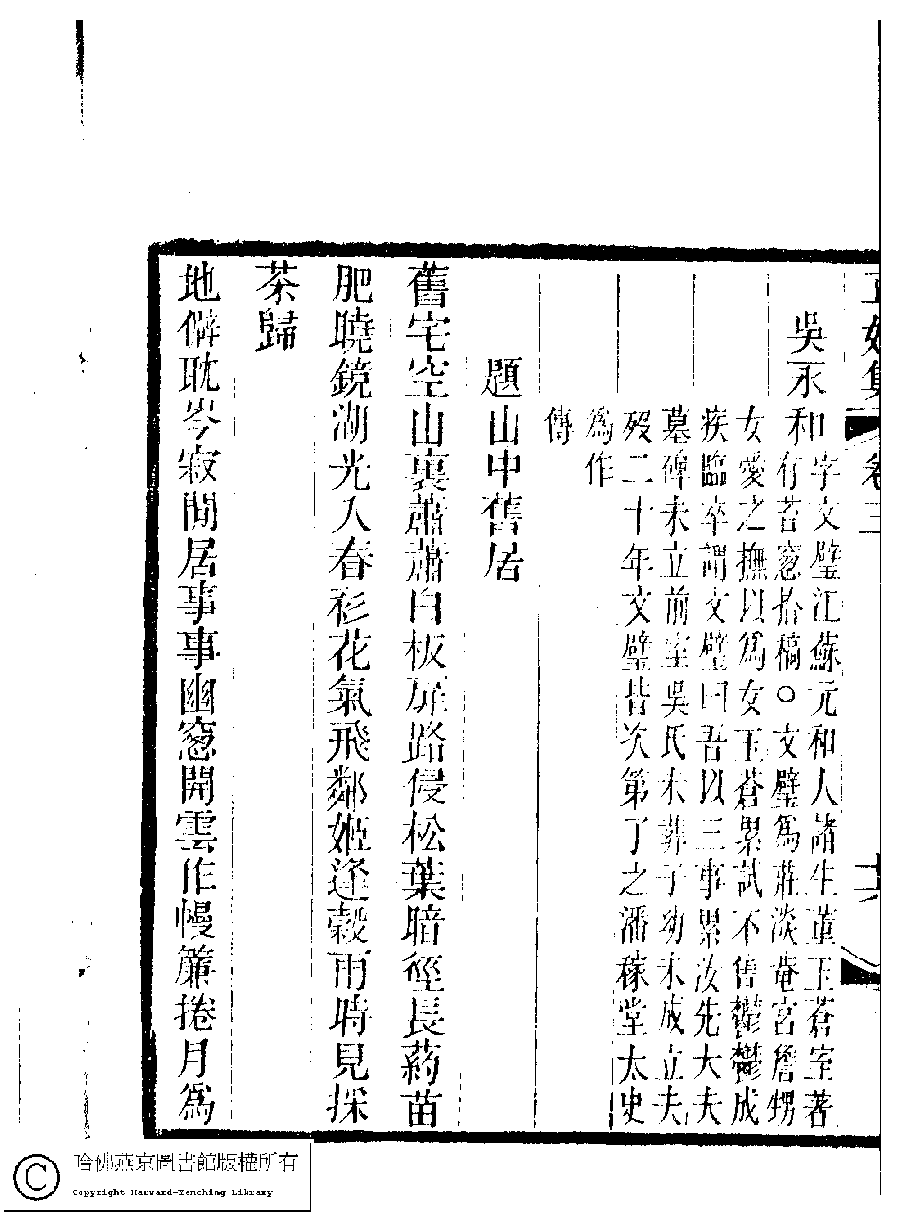 正始集 卷三
吳永和
字文璧江蘇元和人諸生董玉蒼室著
有苔窻拾稿○文璧爲莊淡菴宮詹甥
女愛之撫以爲女玉蒼累試不售鬱鬱成
疾臨卒謂文璧曰吾以三事累汝先大夫
墓碑未立前室吳氏未葬子幼未成立夫
歿二十年文璧皆次第了之潘稼堂太史
爲作
傳
題山中舊居
舊宅空山裏蕭蕭白板扉路侵松葉暗徑長葯苗
肥曉鏡湖光入春衫花氣飛鄰姬逢穀雨時見採
茶歸
地僻耽岑寂閒居事事幽窻開雲作幔簾捲月爲
哈佛燕京圖書館版權所有
Copyright Harvard-Yenching Library